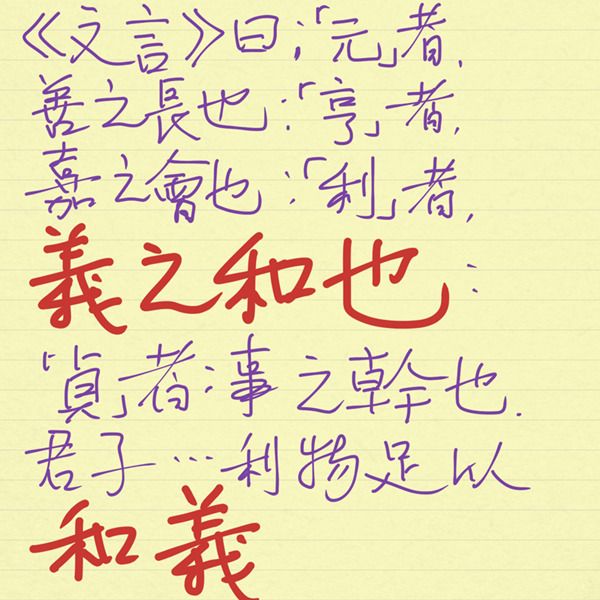 《文言》曰；「元」者，
善之長也：「亨」者，
嘉之會也：「利」者，
義之和也：
「貞」者：事之幹也．
君子…利物足以
和義